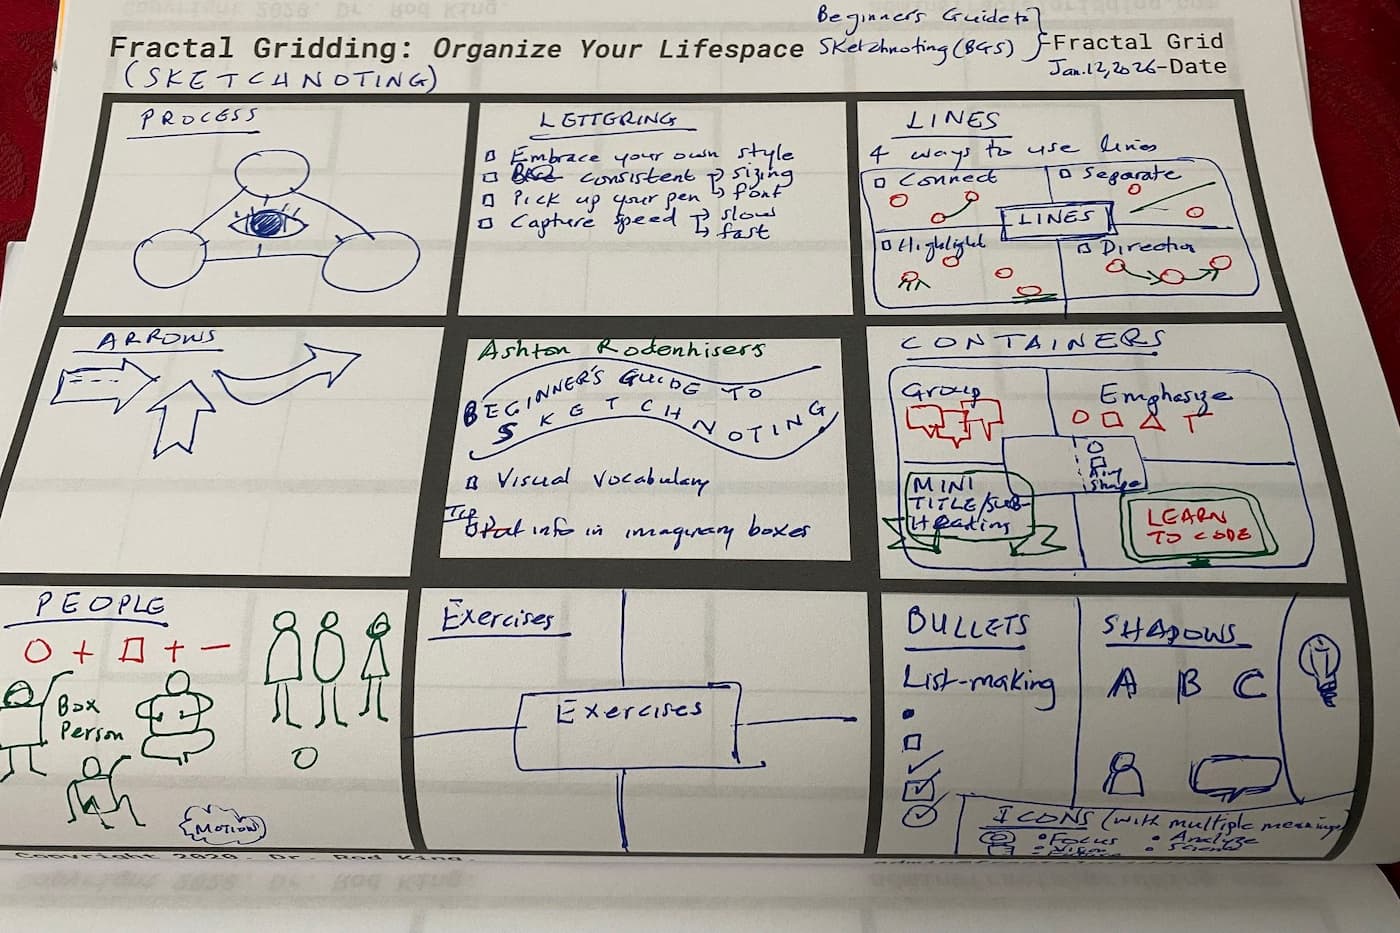 Beginner's Guide to
Fractal Gridding: Organize Your Lifespace
Sketchnoting (BGS)
-Fractal Grid
(SKETCHNOTING)
Jan.12,2026-Date
PROCESS
LETTERING
Embrace your own style
consistent sizing
font
Pick up your pen
Capture speed slow
fast
LINES
4 ways to use lines
Connect
Separate
LINES
Highlight
Direction
ARROWS
Ashton Rodenhisers
BEGINNER'S GUIDE TO
SKETCHNOTING
Visual Vocabulary
Tip
Put info in imaginary boxes
CONTAINERS
Group
Emphasize
Any
Shape
MINI
TITLE/SUB-
Heading
LEARN
TO CODE
PEOPLE
+ +
Box
Person
MOTION
Exercises
Exercises
BULLETS
List-making
SHADOWS
A B C
ICONS (with multiple meanings)
• Focus
• Vision
• Analyze
• Science
Copyright 2020. Dr. Rod King.